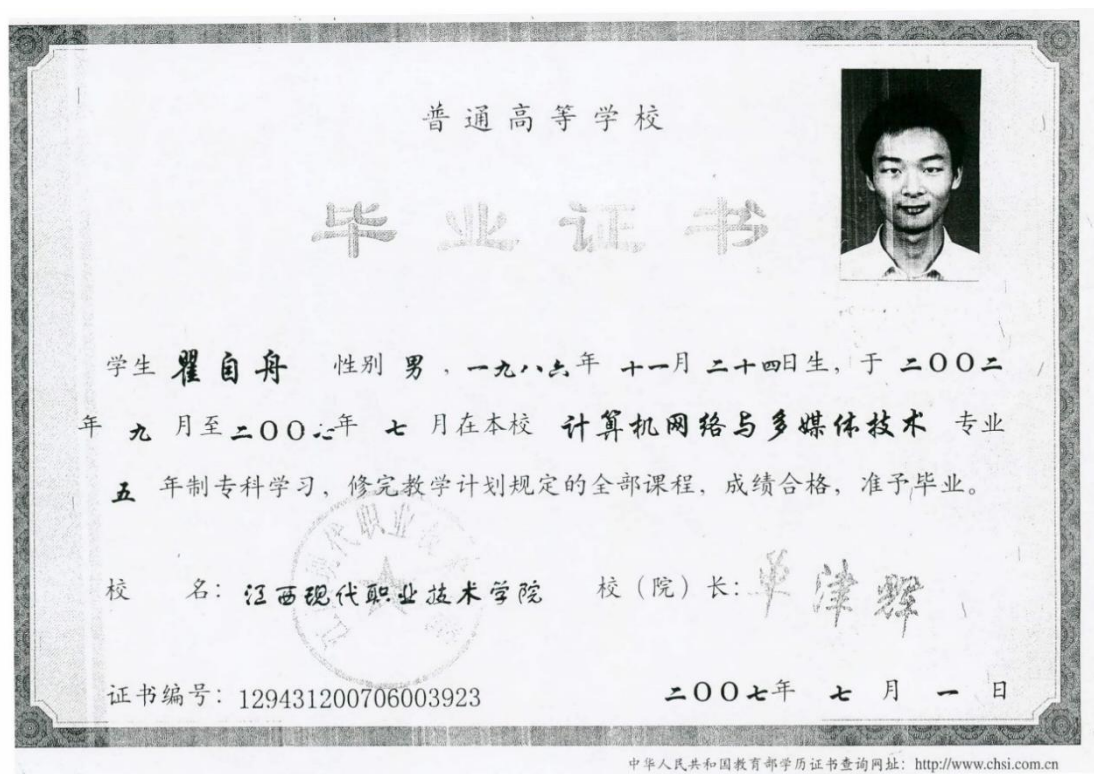 普通高等学校
毕业证书
学生 瞿自舟 性别 男，一九八六年 十一月 二十四日生，于 二〇〇二
年 九 月至二〇〇七年 七 月在本校 计算机网络与多媒体技术 专业
五 年制专科学习，修完教学计划规定的全部课程，成绩合格，准予毕业。
校 名：江西现代职业技术学院 校（院）长：
证书编号：129431200706003923 二〇〇七年 七 月 一 日
中华人民共和国教育部学历证书查询网址：http://www.chsi.com.cn